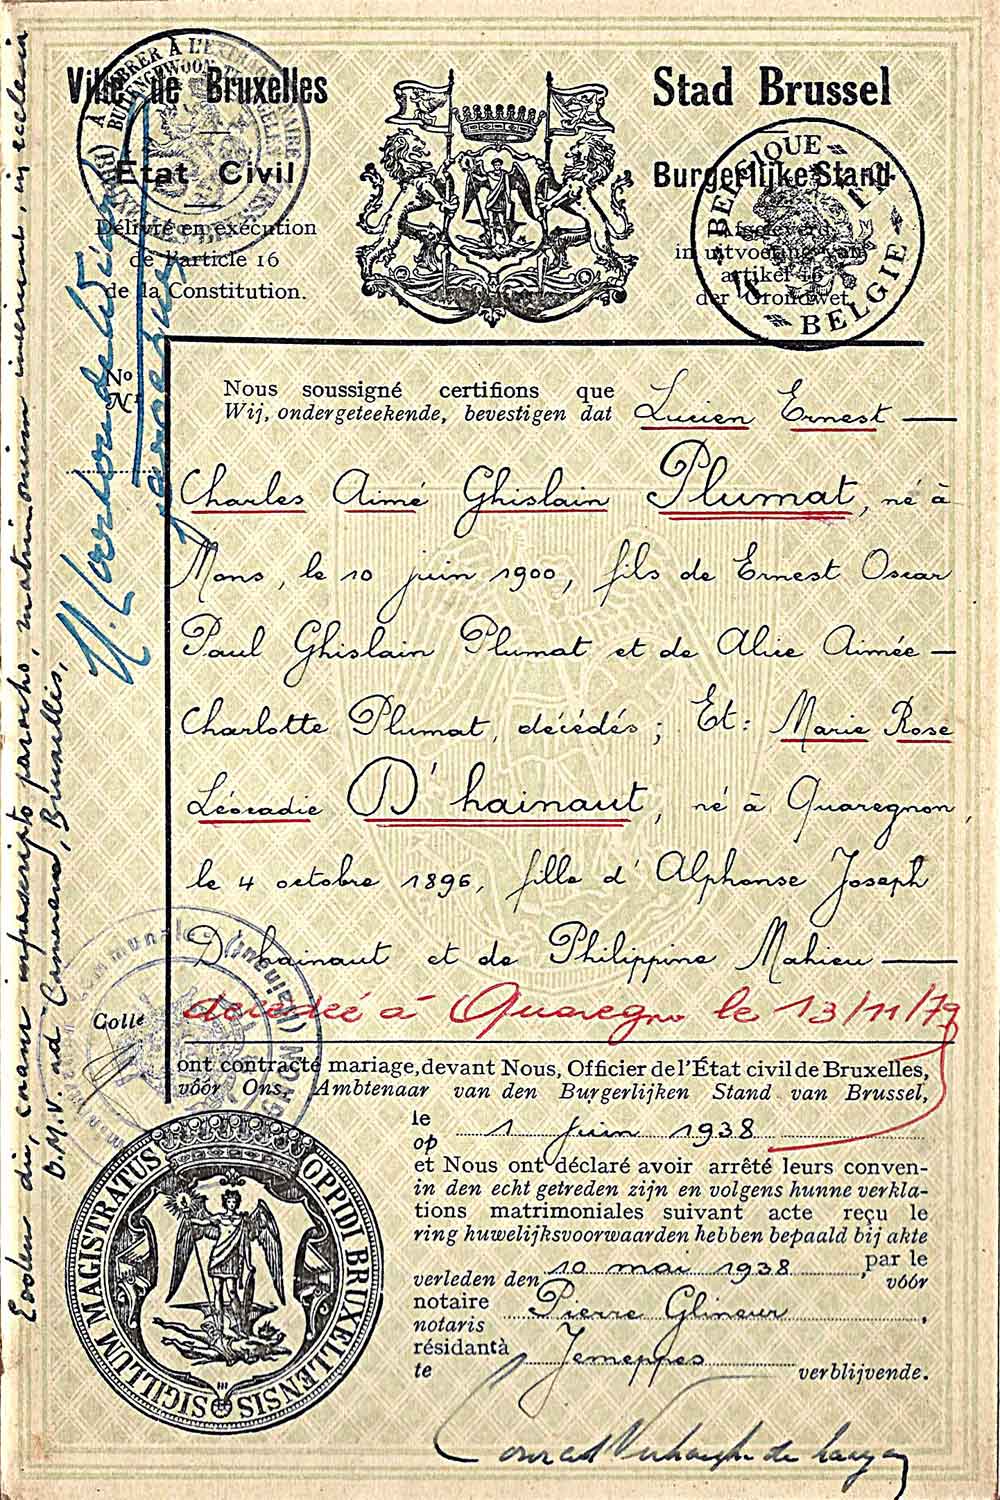 Ville de Bruxelles
État Civil
Délivré en exécution
de l'article 16
de la Constitution.
Stad Brussel
Burgerlijke Stand
Afgeleverd
in uitvoering van
artikel 16
der Grondwet.
BELGIQUE
BELGIË
No
Nr
Nous soussigné certifions que
Wij, ondergeteekende, bevestigen dat Lucien Ernest —
Charles Aimé Ghislain Plumat, né à
Mons, le 10 juin 1900, fils de Ernest Oscar
Paul Ghislain Plumat et de Alice Aimée —
Charlotte Plumat, décédés ; Et : Marie Rose
Léocadie D'hainaut, né à Quaregnon,
le 4 octobre 1896, fille d'Alphonse Joseph
D'hainaut et de Philippine Mahieu —
décédée à Quaregno le 13/11/79
Collé
ont contracté mariage, devant Nous, Officier de l'État civil de Bruxelles,
vóór Ons, Ambtenaar van den Burgerlijken Stand van Brussel,
le
op 1 juin 1938
et Nous ont déclaré avoir arrêté leurs conven-
in den echt getreden zijn en volgens hunne verkla-
tions matrimoniales suivant acte reçu le
ring huwelijksvoorwaarden hebben bepaald bij akte
verleden den 10 mai 1938, par le
vóór
notaire
notaris Pierre Glineur,
résidant à
te Jemeppes verblijvende.
SIGILLUM MAGISTRATUS OPPIDI BRUXELLENSIS
Eodem die, coram infrascripto parocho, matrimonium inierunt, in ecclesia
B.M.V. ad Cameram, Bruxellis,